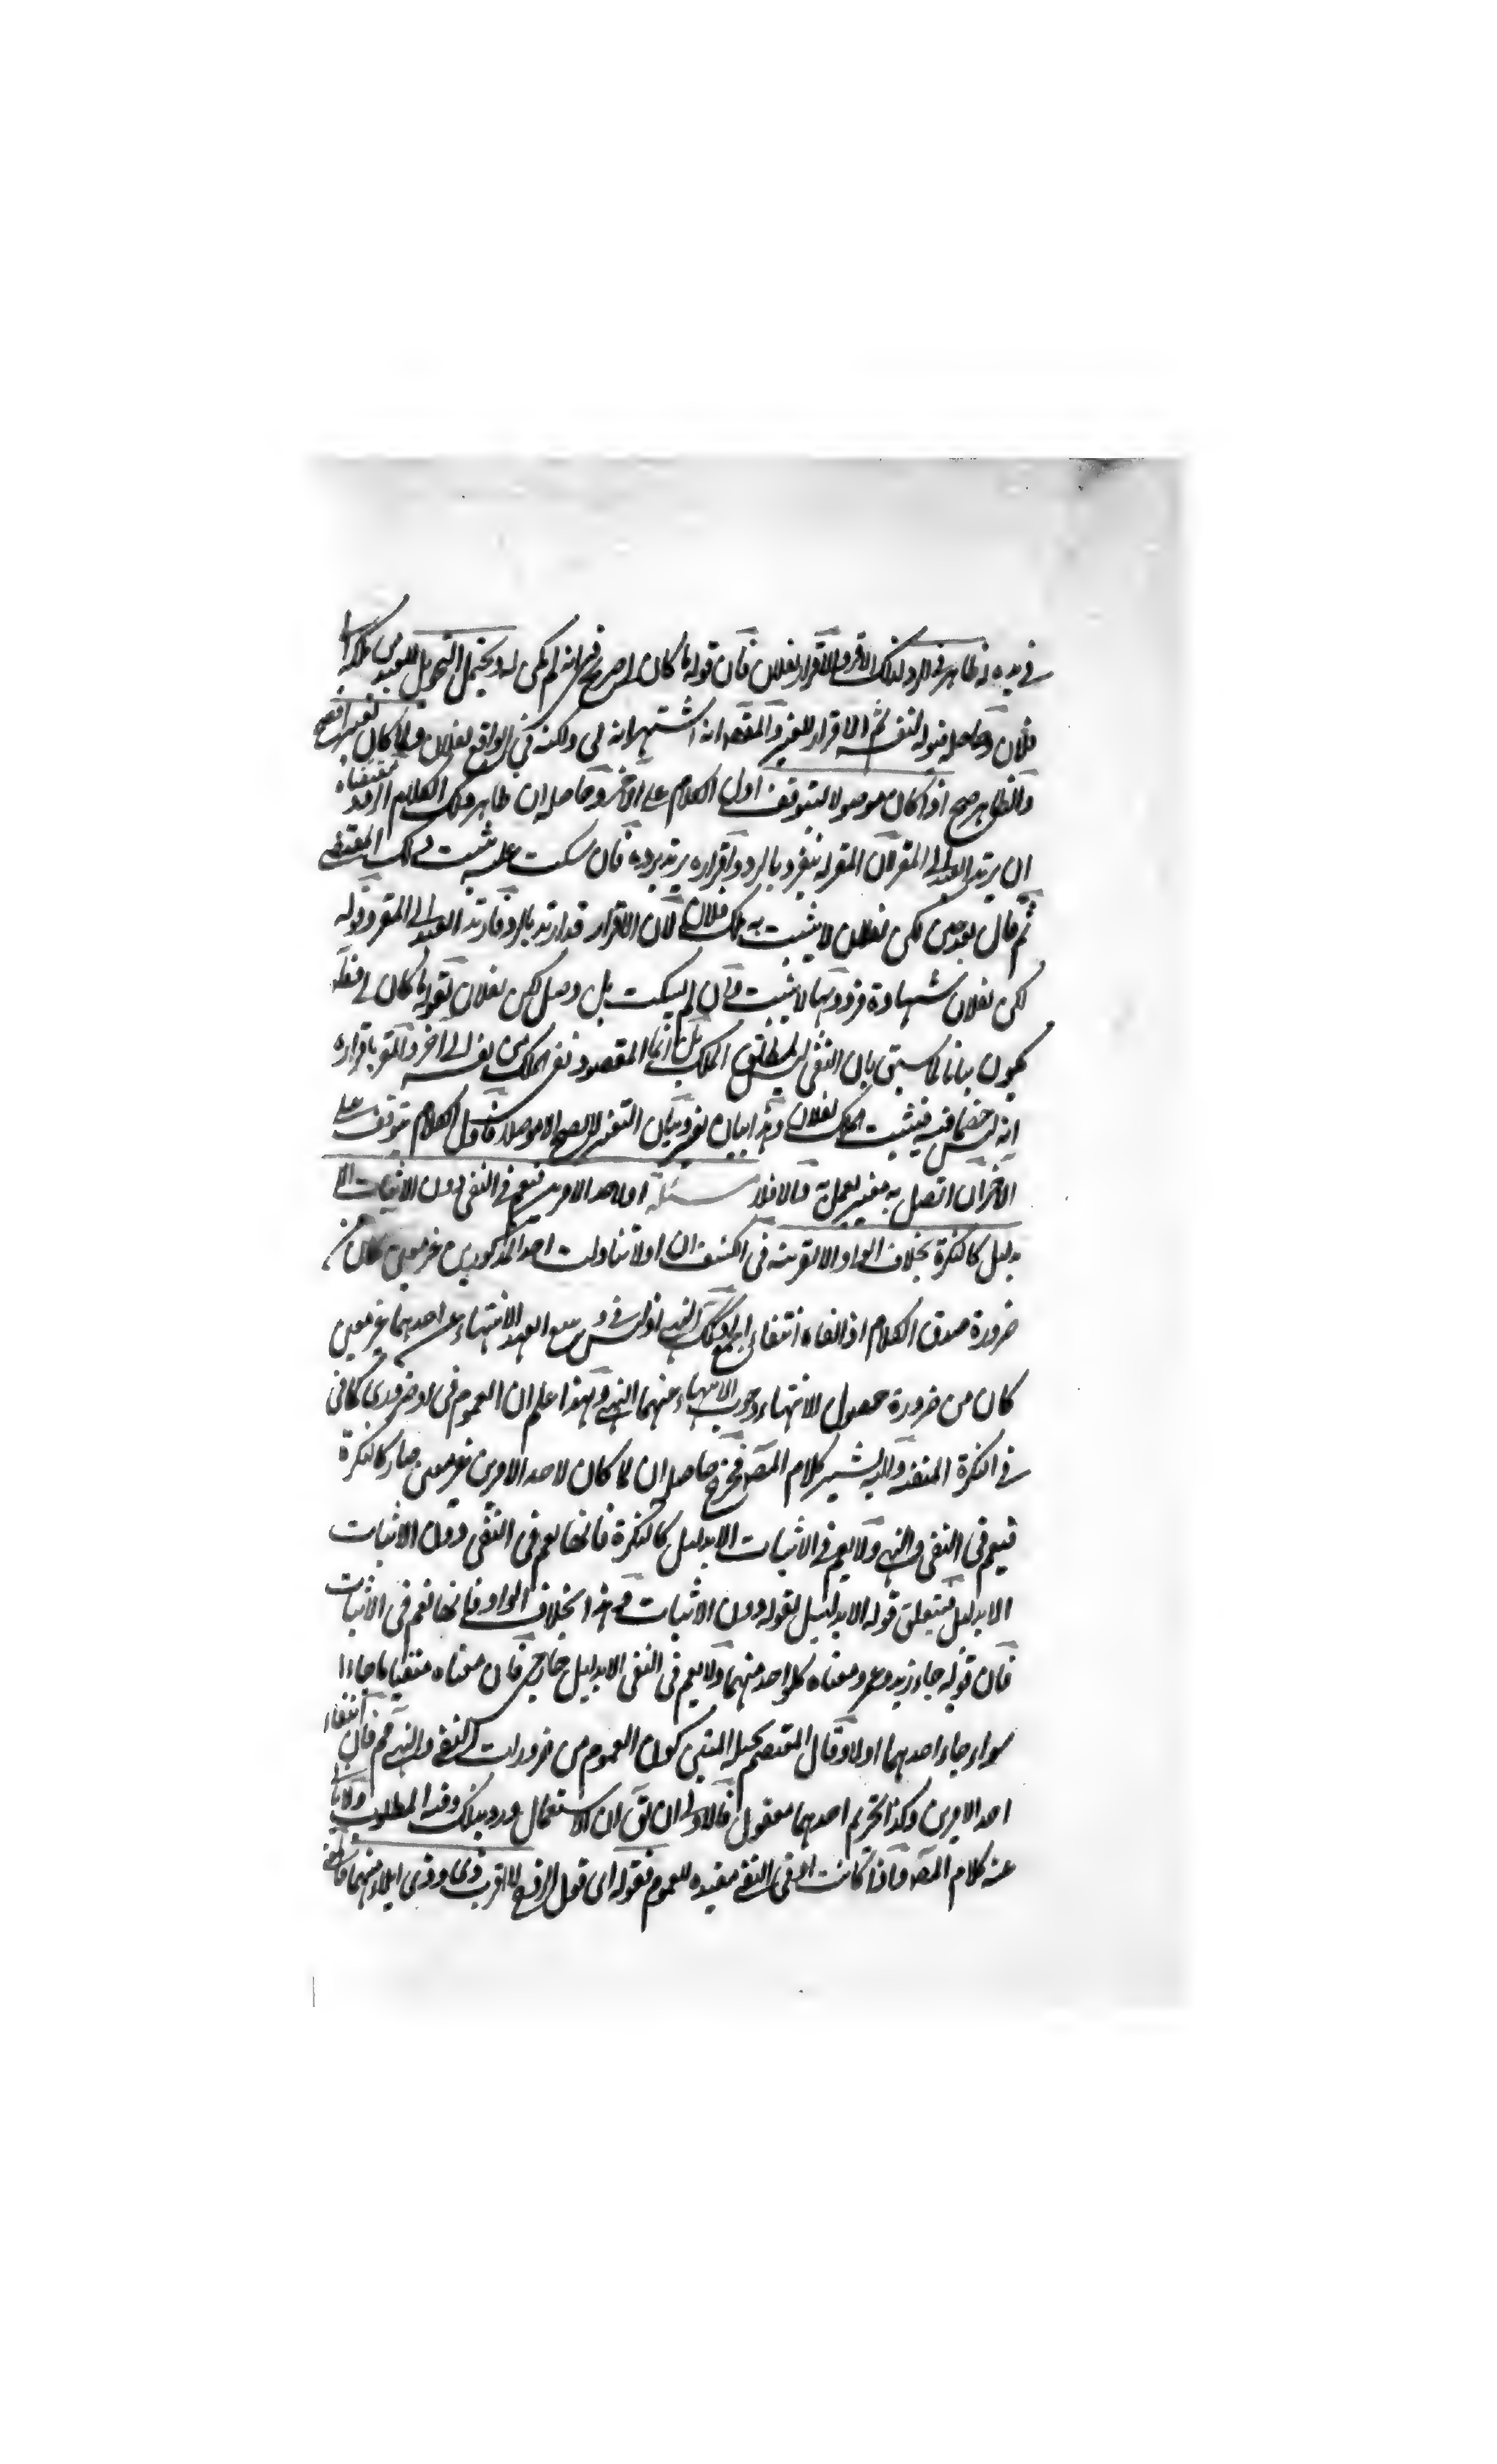 في يده له ظاهر في الرد لذلك الاقرار والاقرار لفلان فان قوله ما كان لي صريح في انه لم يكن له ويحتمل التحويل للعبد من ملكه الى
فلان وحاصله قبوله لنفسه ثم الاقرار للغير والمقصد انه اشتهر انه لي ولكنه في الواقع لفلان ولما كان تغييرا
والظاهر صح اذا كان موصولا ليتوقف اول الكلام على الآخر وحاصله ان ظاهر ذلك الكلام الرد
ان يرتد العبد الى المقر لان المقر له ينفرد بالرد واقراره يرتد برده فان سكت عليه ثبت ذلك المقتضى
ثم قال بعد حين لكن لفلان لا يثبت به ملك فلان لان الاقرار قد ارتد بالرد فارتد العبد الى المقر وقوله
لكن لفلان شهادة فرد وبها لا يثبت وان لم يسكت بل وصل لكن لفلان بقوله ما كان لي قط
يكون بيانا لما سبق بان النفي ليس لمطلق الملك بل انما المقصود نفي الملك من نفسه الى آخر والمقر باقراره
انه ليس خصما فيه فيثبت ملك لفلان وهذا بيان تغيير وبيان التغيير لا يصح الا موصلا فاول الكلام متوقف على
الآخر ان اتصل به مغير يعمل به والا فلا مسئلة او لاحد الامرين فيعم في النفي دون الاثبات الا
بدليل كالنكرة بخلاف الواو الا لقرينة في الكشف ان او لا تناولت احد المذكورين غير معين كان من
ضرورة صدق الكلام اذا نفاه انتفاء الجميع وكذلك النهي اذ ليس في وسع العبد الانتهاء عن احدهما غير معين
كان من ضرورة حصول الانتهاء وجوب الانتهاء عنهما انتهى وبهذا علم ان العموم في او ضروري كما في
في النكرة المنفية واليه يشير كلام المصـ فخرج حاصله ان لما كان لاحد الامرين غير معين صار كالنكرة
فيعم في النفي والنهي ولا يعم في الاثبات الا بدليل كالنكرة فانها تعم في النفي دون الاثبات
الا بدليل فيتعلق قوله الا بدليل بقوله دون الاثبات وهذا بخلاف الواو فانها تعم في الاثبات
فان قوله جاء زيد وعمرو معناه كل واحد منهما ولا يعم في النفي الا بدليل خارجي فان معناه منفيا ما جاءا
سواء جاء احدهما او لا وقال كون العموم من ضرورات النفي والنهي مم فان انتفاء
احد الامرين وكذا تحريم احدهما معقول فالاولى ان يق ان الاستعمال ورد بذلك وفيه المطلوب ولا يأبى
عنه كلام المصـ واذا كانت او في النفي مفيدة للعموم فقوله اي قول الزوج لا اقرب ذي او ذي ايلاء منهما